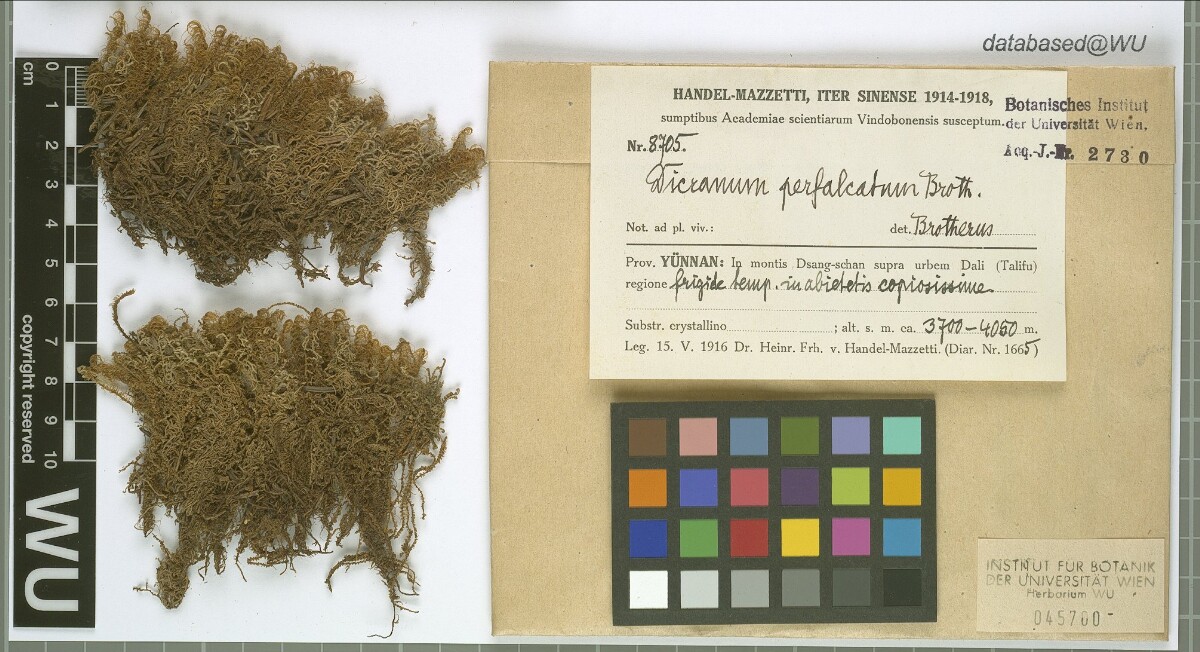 databased@WU
HANDEL-MAZZETTI, ITER SINENSE 1914-1918,
sumptibus Academiae scientiarum Vindobonensis susceptum.
Botanisches Institut
der Universität Wien.
Acq.-J.-Nr. 2730
Nr. 8705.
Dicranum perfalcatum Broth.
Not. ad pl. viv.: det. Brotherus
Prov. YÜNNAN: In montis Dsang-schan supra urbem Dali (Talifu)
regione frigide temp. in abietetis copiosissime
Substr. crystallino ; alt. s. m. ca. 3700-4050 m.
Leg. 15. V. 1916 Dr. Heinr. Frh. v. Handel-Mazzetti. (Diar. Nr. 1665)
INSTITUT FÜR BOTANIK
DER UNIVERSITÄT WIEN
Herbarium WU
045700-
cm
0
1
2
3
4
5
6
7
8
9
10
copyright reserved
WU